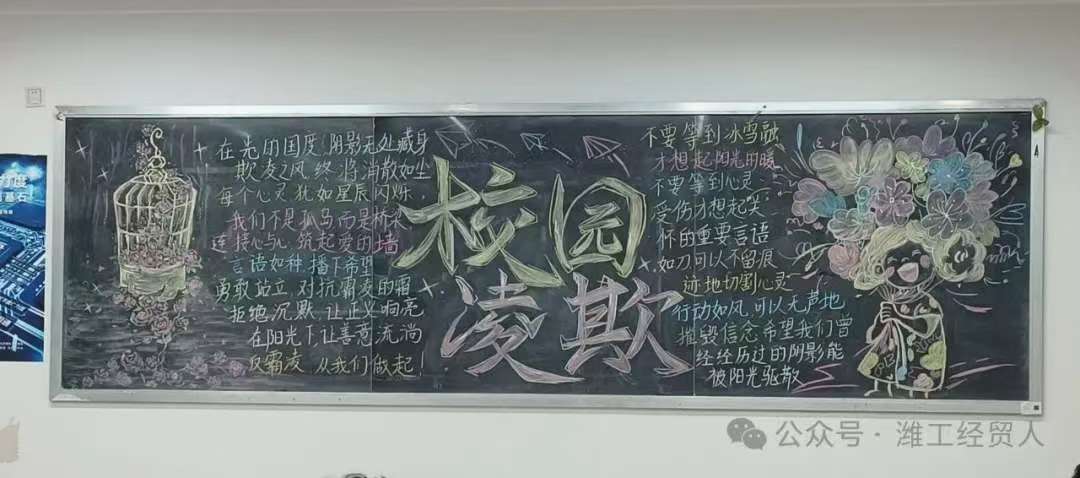 在光的国度,阴影无处藏身
欺凌之风,终将消散如尘
每个心灵,犹如星辰闪烁,
我们不是孤岛而是桥梁
连接心与心,筑起爱的墙
言语如种,播下希望
勇敢站立,对抗霸凌的霜
拒绝沉默,让正义响亮
在阳光下,让善意流淌
反霸凌,从我们做起!
校园
凌欺
不要等到冰雪融
才想起阳光的暖
不要等到心灵
受伤才想起笑
怀的重要言语
如刀可以不留痕
迹地切割心灵
行动如风,可以无声地
摧毁信念希望我们曾
经经历过的阴影能
被阳光驱散
力度
基石
公众号·潍工经贸人